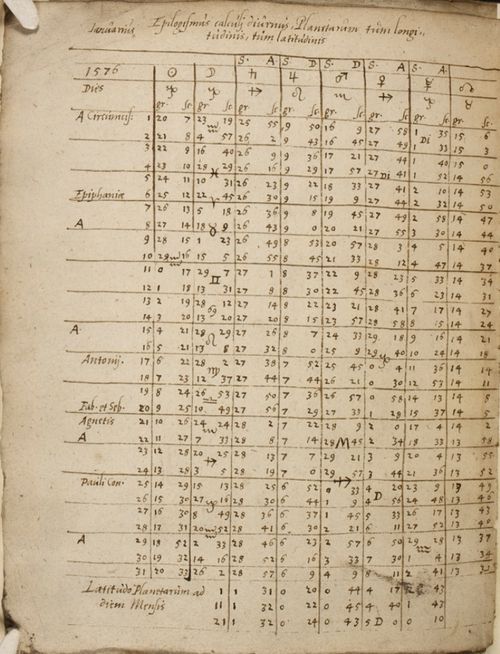 Ianuarius Epilogismus calculi diurnus, Planetarum tum longi-
tudinis, tum latitudinis
S. A S. D S. D S. A S. A
1576 ☉ ☽ ♄ ♃ ♂ ♀ ☿ ☊
Dies ♑ ♑ ♐ ♌ ♏ ♐ ♑ ♉
gr. sc. gr. sc. gr. sc. gr. sc. gr. sc. gr. sc. gr. sc. gr. sc.
A Circumcis: 1 20 7 23 19 25 55 9 50 16 9 27 58 1 35 15 6
2 21 8 4 57 26 2 9 43 16 45 27 49 1 33 15 3
3 22 9 16 40 26 9 9 36 17 21 27 44 1 40 15 0
4 23 10 28 29 26 16 9 29 17 57 27 41 1 52 14 56
5 24 11 10 31 26 23 9 22 18 33 27 41 2 10 14 53
Epiphaniæ 6 25 12 22 45 26 30 9 15 19 9 27 44 2 32 14 50
7 26 13 5 18 26 36 9 8 19 45 27 49 2 58 14 47
A 8 27 14 18 9 26 43 9 0 20 21 27 55 3 30 14 44
9 28 15 1 23 26 49 8 53 20 57 28 3 4 5 14 40
10 29 16 15 5 26 55 8 45 21 33 28 12 4 47 14 37
11 0 17 29 7 27 1 8 37 22 9 28 23 5 33 14 34
12 1 18 13 31 27 8 8 30 22 45 28 36 6 23 14 31
13 2 19 28 12 27 14 8 22 23 21 28 41 7 17 14 27
14 3 20 13 20 27 20 8 15 23 57 28 58 8 15 14 24
A 15 4 21 28 29 27 26 8 7 24 33 29 18 9 16 14 21
16 5 21 13 8 27 32 8 0 25 9 29 40 10 24 14 18
Antonij. 17 6 22 28 2 27 38 7 52 25 45 0 4 11 36 14 14
18 7 23 12 37 27 44 7 44 26 21 0 30 12 53 14 11
19 8 24 26 53 27 50 7 36 26 57 0 58 14 13 14 8
Fab. et Seb. 20 9 25 10 49 27 56 7 29 27 33 1 29 15 37 14 5
Agnetis 21 10 26 24 24 28 2 7 22 28 9 2 0 17 4 14 2
A 22 11 27 7 33 28 8 7 14 28 45 2 34 18 33 13 58
23 12 28 20 25 28 13 7 7 29 21 3 9 20 4 13 55
24 13 28 3 5 28 19 7 0 29 57 3 44 21 36 13 52
Pauli Con. 25 14 29 15 13 28 25 6 52 0 33 4 20 23 9 13 49
26 15 30 27 16 28 30 6 44 1 9 4 56 24 48 13 46
27 16 30 8 49 28 36 6 37 1 45 5 33 26 17 13 43
28 17 31 20 52 28 41 6 30 2 21 6 11 27 52 13 40
A 29 18 52 2 33 28 46 6 23 2 57 6 50 29 28 13 37
30 19 32 14 16 28 52 6 16 3 33 7 30 1 4 13 34
31 20 33 26 2 28 57 6 9 4 9 8 11 2 41 13 30
Latitudo Planetarum ad 1 1 31 0 20 0 44 4 17 43
diem Mensis 11 1 32 0 22 0 45 4 40 1 43
21 1 32 0 24 0 43 5 D 0 0 10